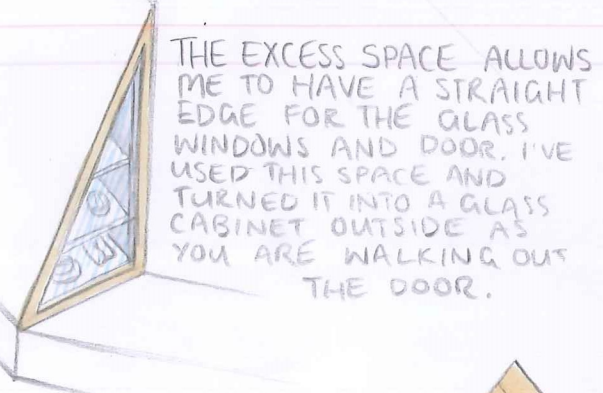 THE EXCESS SPACE ALLOWS
ME TO HAVE A STRAIGHT
EDGE FOR THE GLASS
WINDOWS AND DOOR. I'VE
USED THIS SPACE AND
TURNED IT INTO A GLASS
CABINET OUTSIDE AS
YOU ARE WALKING OUT
THE DOOR.